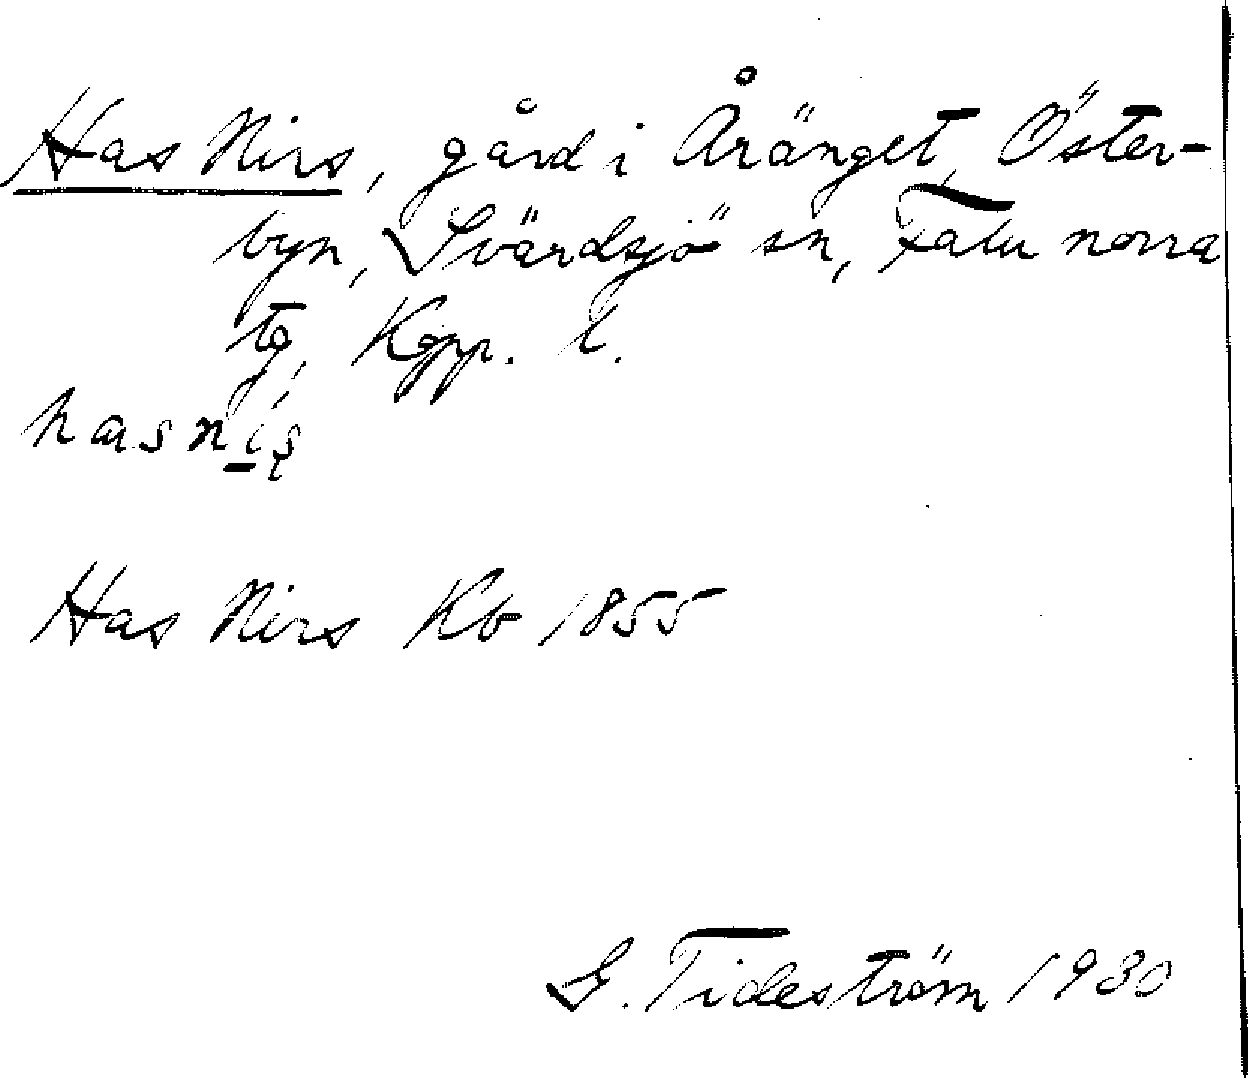 Has Nirs, gård i Åränget, Öster-
byn, Svärdsjö sn, Falu norra
tg, Kopp. l.
Has Nirs Kb 1855
G. Tideström 1930